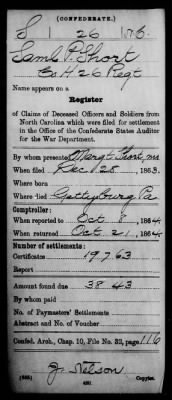 (CONFEDERATE.)
S 26 N.C.
Saml P. Short
Co H 26 Regt
Name appears on a
Register
of Claims of Deceased Officers and Soldiers from
North Carolina which were filed for settlement
in the Office of the Confederate States Auditor
for the War Department.
By whom presented Margt Short, mo
When filed Dec 28, 1863.
Where born
Where died Gettysburg Pa
Comptroller:
When reported to Oct 8, 1864.
When returned Oct 21, 1864.
Number of settlements:
Certificates 19763
Report
Amount found due 38 43
By whom paid
No. of Paymasters' Settlements
Abstract and No. of Voucher
Confed. Arch., Chap. 10, File No. 32, page 116
J. Nelson
Copyist.